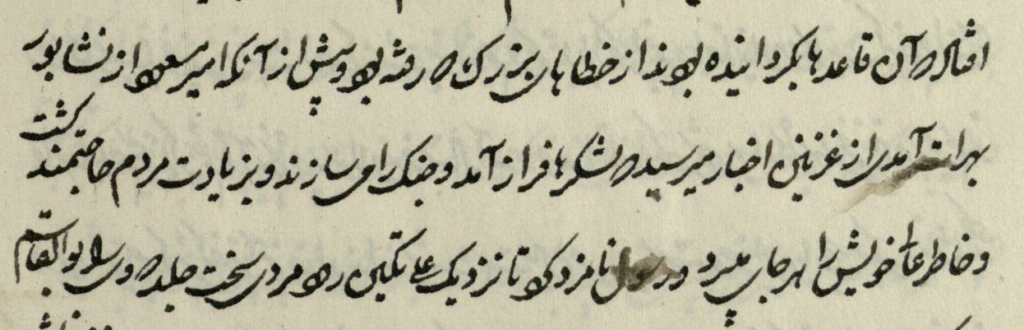 افتاد که آن قاعدها بکردانیده بودند از خطاهای بزرک که رفته بود و پیش از آنکه امیر مسعود از نشابور
بهرات آمدی از غزنین اخبار میرسید که لشکرها فراز آمد و جنک را می سازند و بزیادت مردم حاجتمند کشت
و خاطر عالی خویش را هر جای میبرد و رسول نامزد کرد تا نزدیک علی تکین رود مردی سخت جلد که وی را بوالقاسم